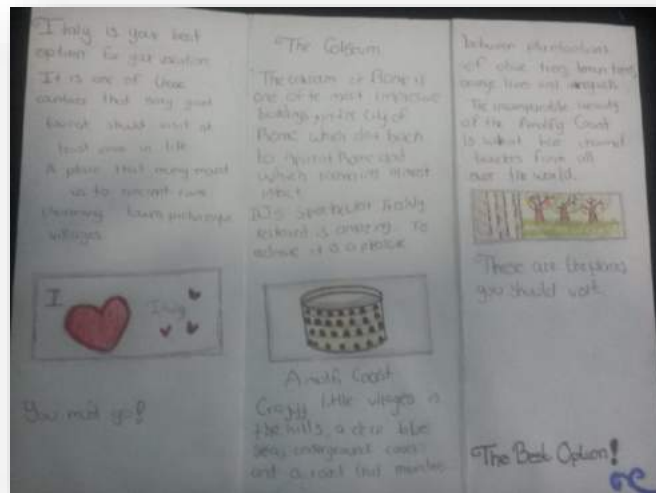 Italy is your best
option for your vacation
It is one of those
countries that every good
tourist should visit at
least once in life
A place that
us to ancient
charming towns picturesque
villages
I
Italy
You must go!
The Coliseum
The coliseum of Rome is
one of the most impressive
buildings in the city of
Rome which date back
to Ancient Rome and
which remains almost
intact
It's spectacular
restored is amazing. To
admire it is a pleasure
Amalfi Coast
Craggy little villages in
the hills, a clear blue
sea, underground caves
and a giant
between plantations
of olive trees, lemon trees,
orange trees and vineyards
The incomparable variety
of the Amalfi Coast
is what has charmed
travelers from all
over the world.
These are the places
you should visit.
The Best Option!